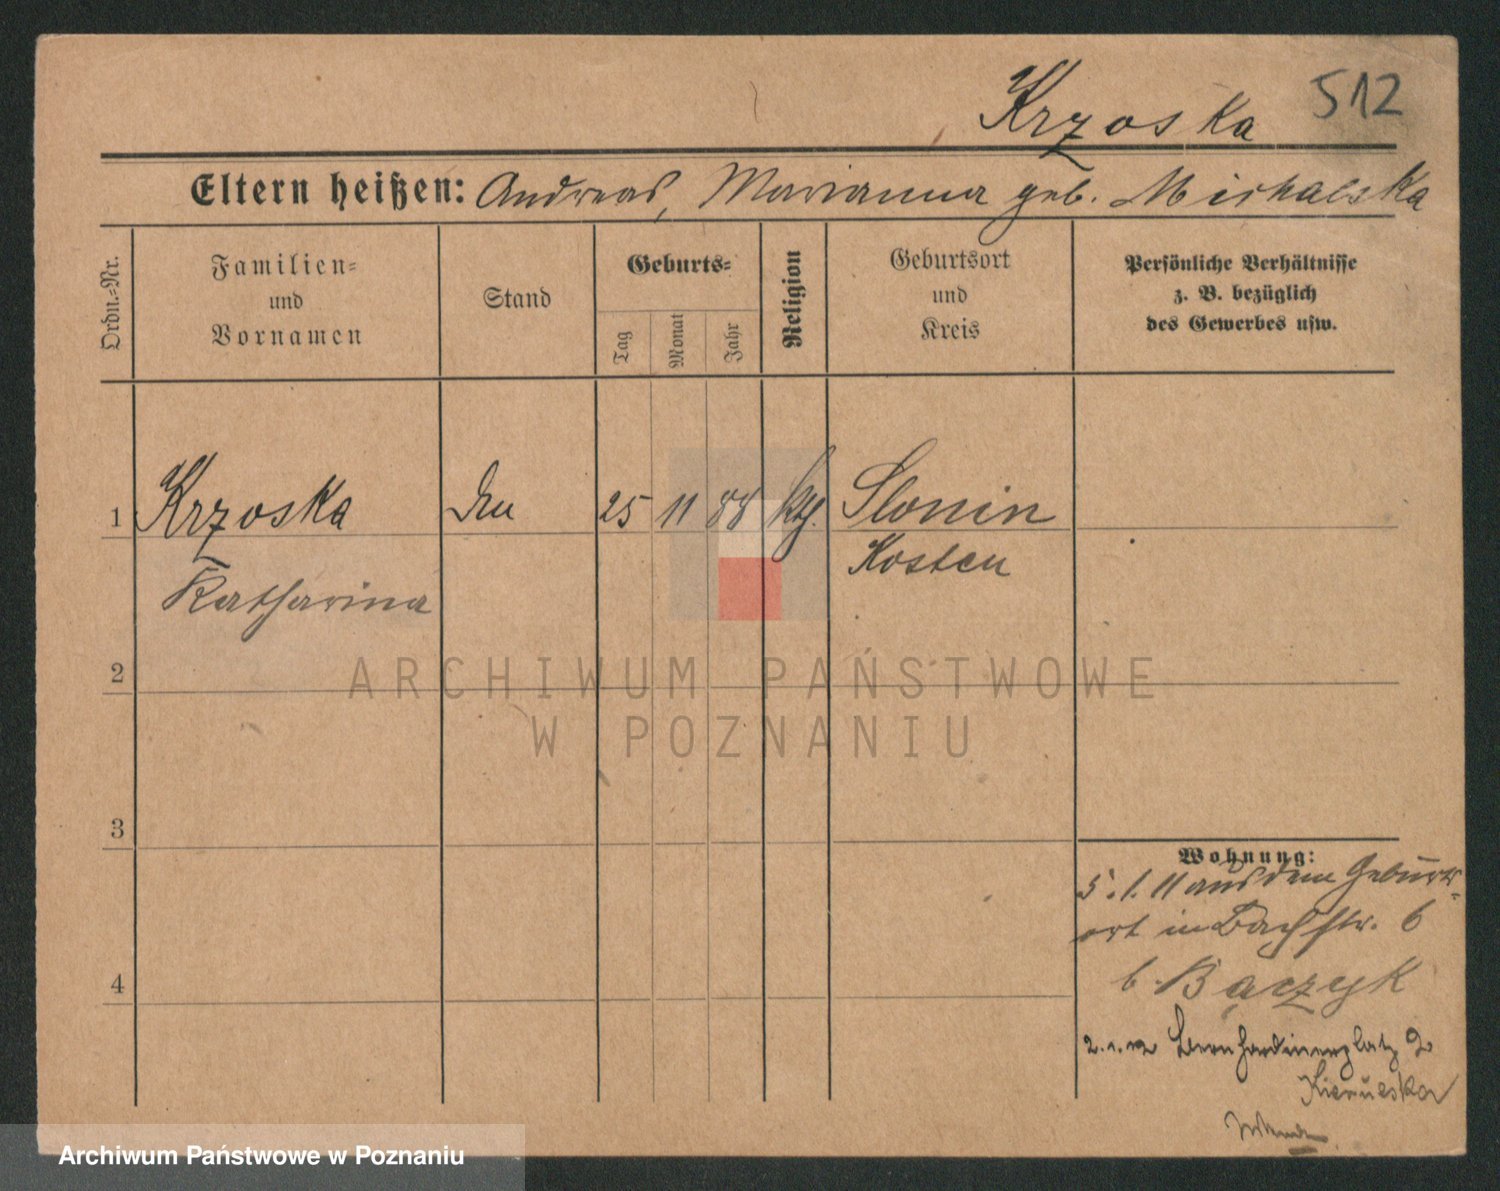 Krzoska 512
Eltern heißen: Andreas, Marianna geb. Michalska
Ordn.=Nr.
Familien=
und
Vornamen
Stand
Geburts=
Tag
Monat
Jahr
Religion
Geburtsort
und
Kreis
Persönliche Verhältnisse
z. B. bezüglich
des Gewerbes usw.
1 Krzoska 25 11 88 kth. Slonin
Katharina Kosten
2
3
4
Wohnung:
5.1.11 aus dem Geburts-
ort in Bachstr. 6
b. Bączyk
2.1.12 Bernhardinerplatz 2
ARCHIWUM PAŃSTWOWE
W POZNANIU
Archiwum Państwowe w Poznaniu